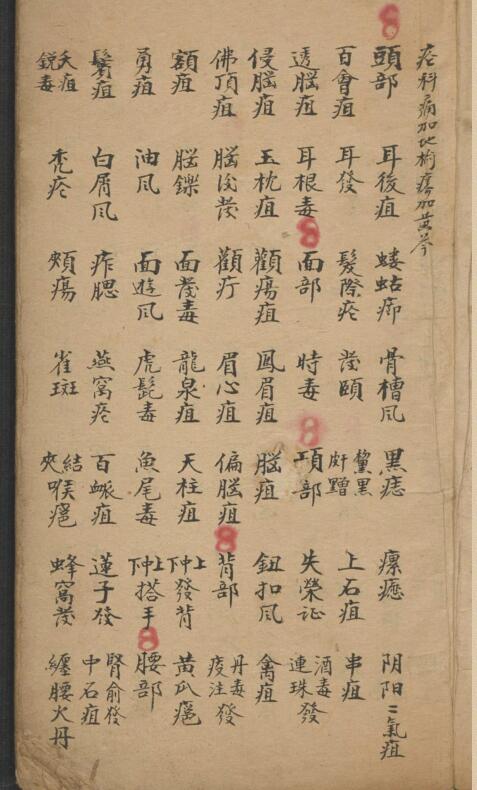 疮科病加地榆 加黄芩
頭部 百會疽 透腦疽 侵腦疽 佛頂疽 額疽 勇疽 鬢疽 夭疽銳毒
耳後疽 耳發 耳根毒 玉枕疽 腦後發 腦鑠 油风 白屑风 禿疮
蝼蛄疖 髮際疮 面部 顴瘍疽 顴疔 面發毒 面遊风 痄腮 頰瘍
骨槽风 發頤 時毒 鳳眉疽 眉心疽 龍泉疽 虎髭毒 燕窩疮 雀斑
黑痣 黧黑皯䵳 項部 腦疽 偏腦疽 天柱疽 魚尾毒 百脈疽 結夾喉癰
瘰癧 上石疽 失榮证 鈕扣风 背部 上中下發背 上中下搭手 蓮子發 蜂窩發
阴阳二氣疽 串疽 酒毒連珠發 禽疽 丹毒疫注發 黄瓜癰 腰部 腎俞發 中石疽 纏腰火丹